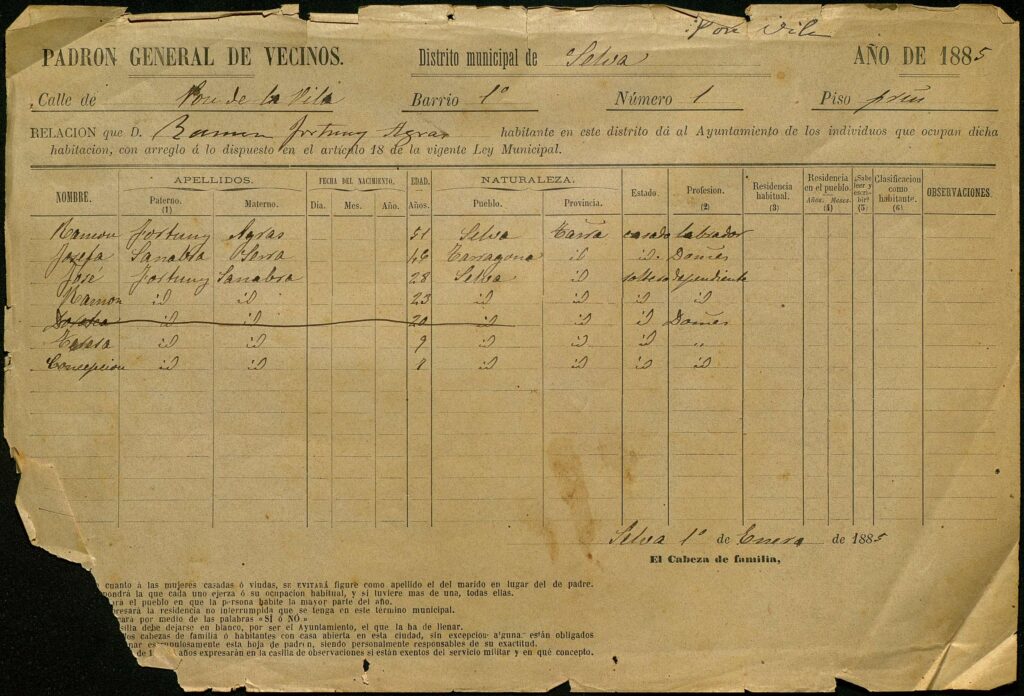 Pou Vila
PADRON GENERAL DE VECINOS. Distrito municipal de Selva AÑO DE 1885
Calle de Pou de la Vila Barrio 1º Número 1 Piso
RELACION que D. Ramon Fortuny Agras habitante en este distrito dá al Ayuntamiento de los individuos que ocupan dicha
habitacion, con arreglo á lo dispuesto en el artículo 18 de la vigente Ley Municipal.
NOMBRE. APELLIDOS. FECHA DEL NACIMIENTO. EDAD. NATURALEZA. Estado. Profesion. (2) Residencia habitual. (3) Residencia en el pueblo. ¿Sabe leer y escribir? (5) Clasificacion como habitante. (6) OBSERVACIONES
Paterno. (1) Materno. Dia. Mes. Año. Años. Pueblo. Provincia. Años. (4) Meses.
Ramon Fortuny Agras 51 Selva Tarrª casado labrador
Josefa Sanabra Sarra 46 Tarragona id id. Domés
José Fortuny Sanabra 28 Selva id soltero dependiente
Ramon id id 23 id id id id
id id 20 id id id Domés
Teresa id id 9 id id id "
Concepcion id id 8 id id id id
Selva 1º de Enero de 1885
El Cabeza de familia,
cuanto á las mujeres casadas ó viudas, SE EVITARÁ figure como apellido el del marido en lugar del de padre.
pondrá la que cada uno ejerza ó su ocupacion habitual, y si tuviere mas de una, todas ellas.
ará el pueblo en que la persona habite la mayor parte del año.
presará la residencia no interrumpida que se tenga en este término municipal.
cará por medio de las palabras «SI ó NO»
silla debe dejarse en blanco, por ser el Ayuntamiento, el que la ha de llenar.
los cabezas de familia ó habitantes con casa abierta en esta ciudad, sin excepcion alguna están obligados
nar escrupulosamente esta hoja de padron, siendo personalmente responsables de su exactitud.
de 1 años expresarán en la casilla de observaciones si están exentos del servicio militar y en qué concepto.